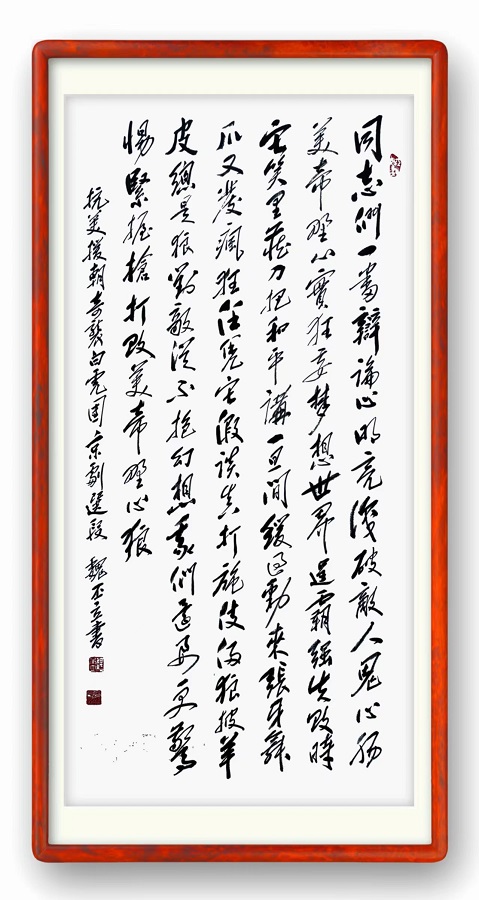 同志們一番辯論心明亮識破敵人鬼心腸
美帝野心實狂妄梦想世界逞霸强失敗時
它笑里藏刀把和平講一旦間緩過勁來張牙舞
爪又發瘋狂任凭它假談真打施伎俩狼披羊
皮總是狼對敵從不抱幻想我們還要更警
惕緊握槍打敗美帝野心狼
抗美援朝奇襲白虎团京劇選段 魏立書